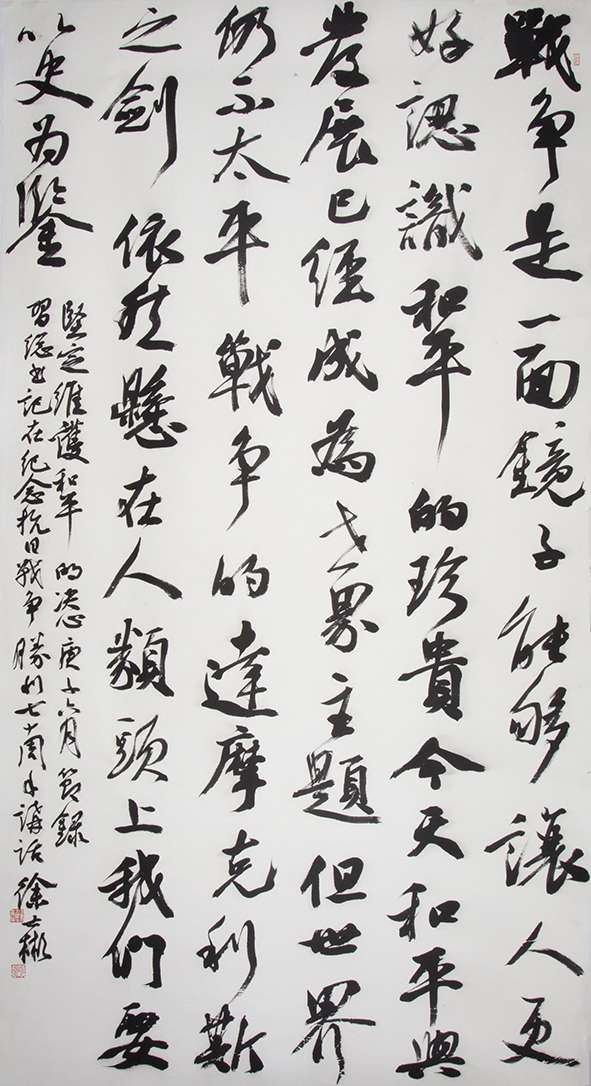 戰争是一面鏡子能够讓人更
好認識和平的珍貴今天和平與
發展已經成為世界主題但世界
仍不太平戰争的達摩克利斯
之劍依然懸在人類頭上我們要
以史為鑒
堅定維護和平的决心庚子六月節録
習總書記在紀念抗日戰争勝利七十周年講話 徐士彬